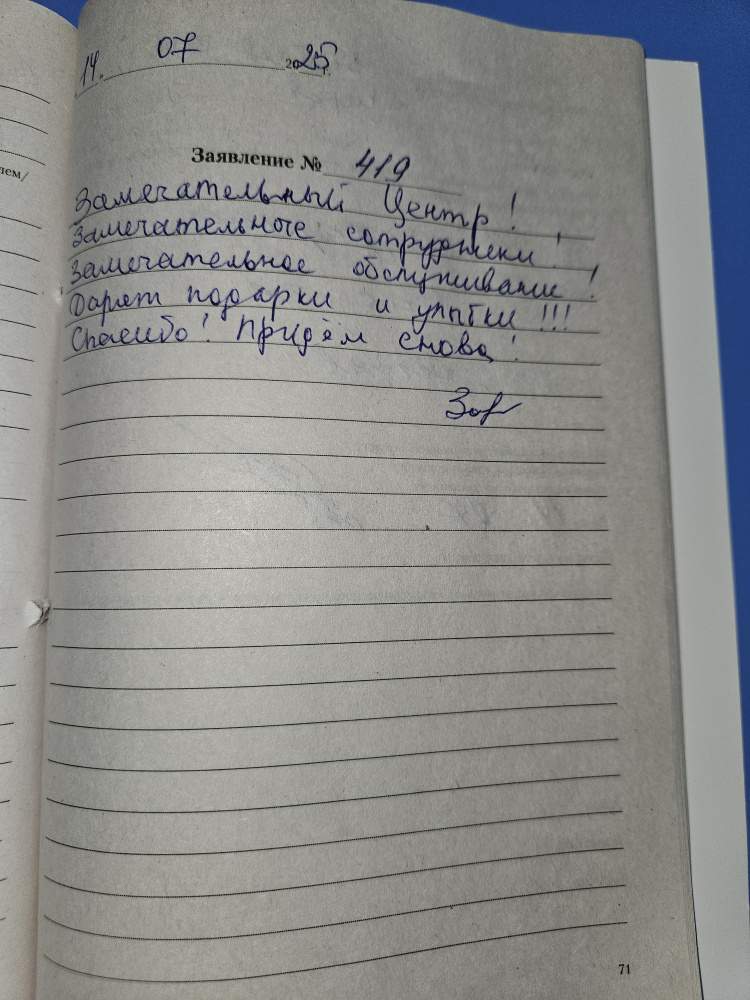 14. 07 2025 г.
Заявление № 419
Замечательный Центр!
Замечательные сотрудники!
Замечательное обслуживание!
Дарят подарки и улыбки!!!
Спасибо! Придём снова!
71